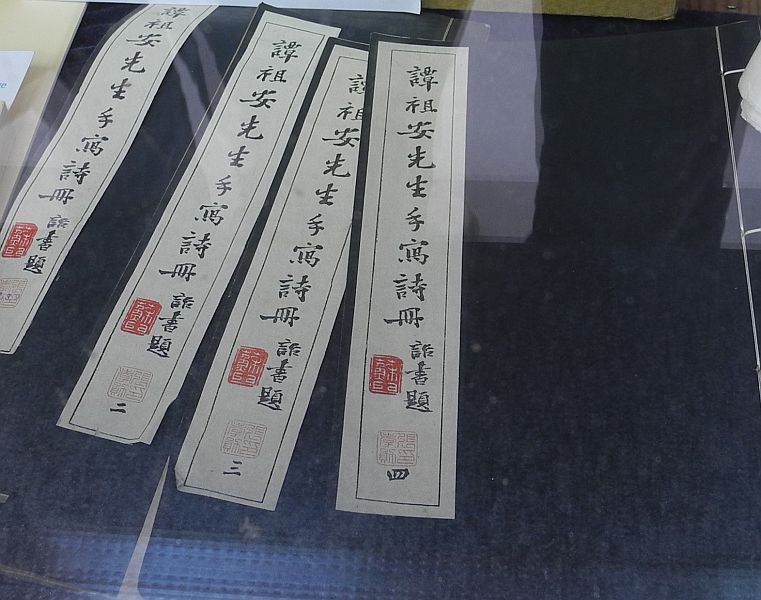 譚祖安先生手寫詩冊
詒書題
譚祖安先生手寫詩冊
詒書題
二
譚祖安先生手寫詩冊
詒書題
三
譚祖安先生手寫詩冊
詒書題
四